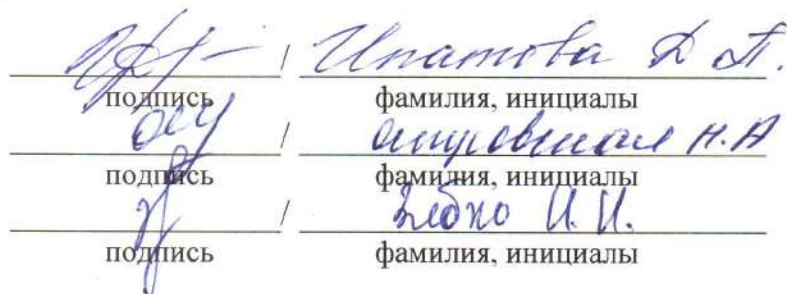 / Ипатова Д. П.
подпись фамилия, инициалы
/ Н.А
подпись фамилия, инициалы
/ И.И.
подпись фамилия, инициалы